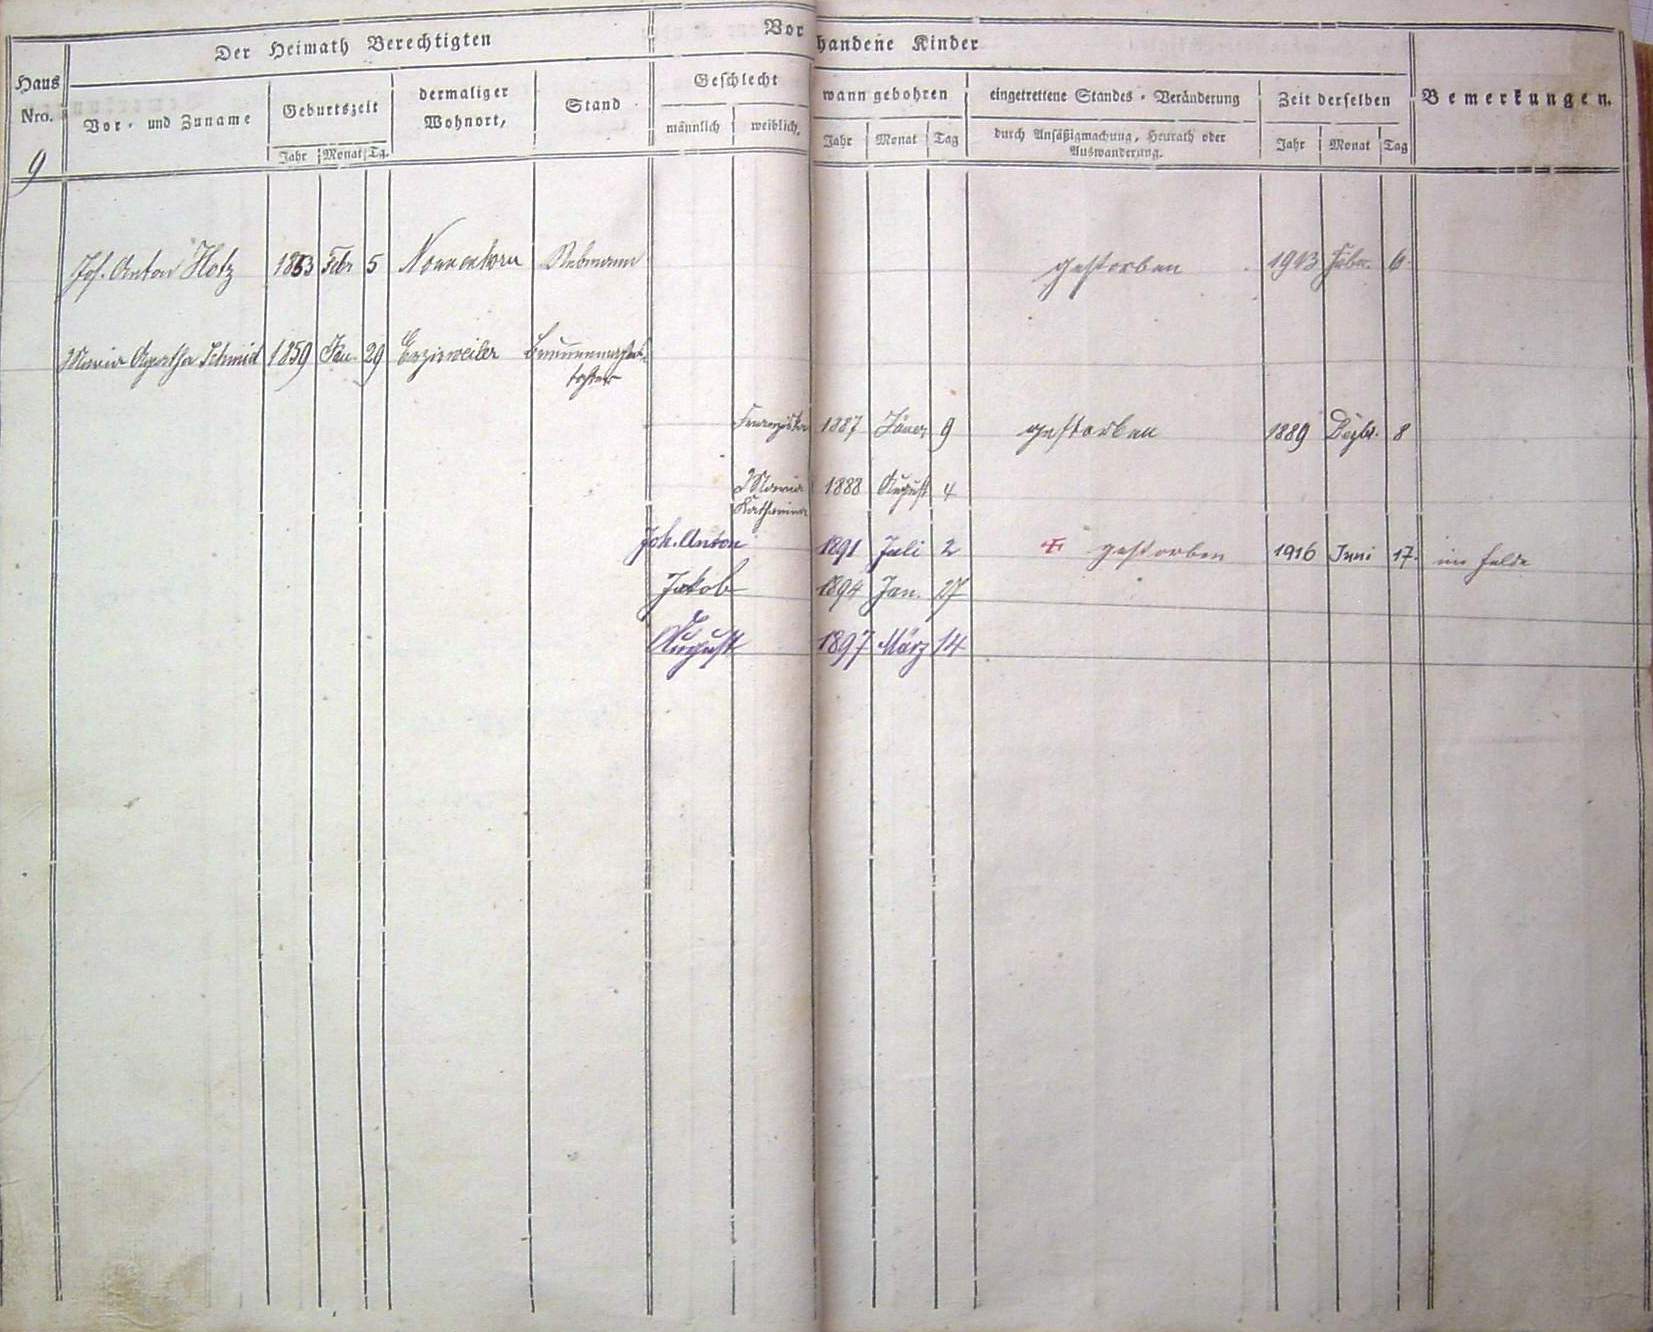 Der Heimath Berechtigten
Vorhandene Kinder
Haus Nro.
Vor- und Zuname
Geburtszeit
dermaliger Wohnort,
Stand
Geschlecht
wann gebohren
eingetrettene Standes-Veränderung
Zeit derselben
Bemerkungen.
männlich
weiblich,
durch Ansäßigmachung, Heurath oder
Auswanderung.
Jahr Monat Tg.
Jahr Monat Tag
Jahr Monat Tag
9
Jos. Anton Hotz 1853 Febr 5 Nonnenhorn Rebmann gestorben 1943 Febr. 6
Maria Agatha Schmid 1859 Jan. 29 Enzisweiler
Franziska 1887 Jäner 9 gestorben 1889 Dezbr. 8
Maria 1888 August 4
Katharina
Joh. Anton 1891 Juli 2 gestorben 1916 Juni 17. im Felde
Jakob 1894 Jan. 27
August 1897 März 14